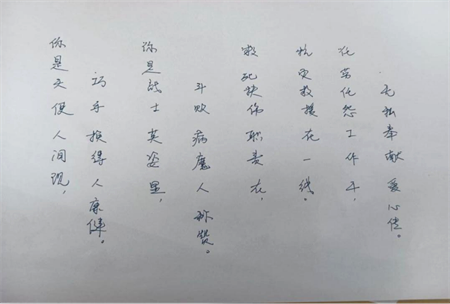 你是天使人间现，
巧手换得人康健。
你是战士英姿显，
斗败病魔人称赞。
救死扶伤职责在，
抗灾救援在一线。
任劳任怨工作斗，
无私奉献爱心传。